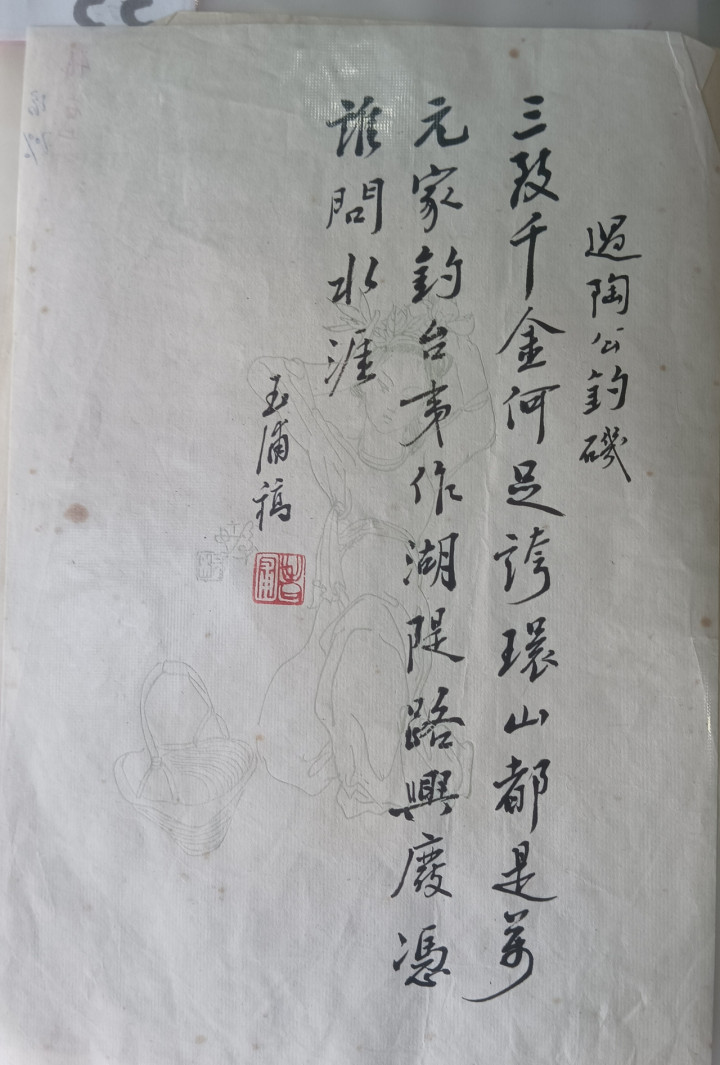 過陶公釣磯
三致千金何足誇環山都是萬
元家釣台夷作湖隄路興廢憑
誰問水涯
玉浦稿